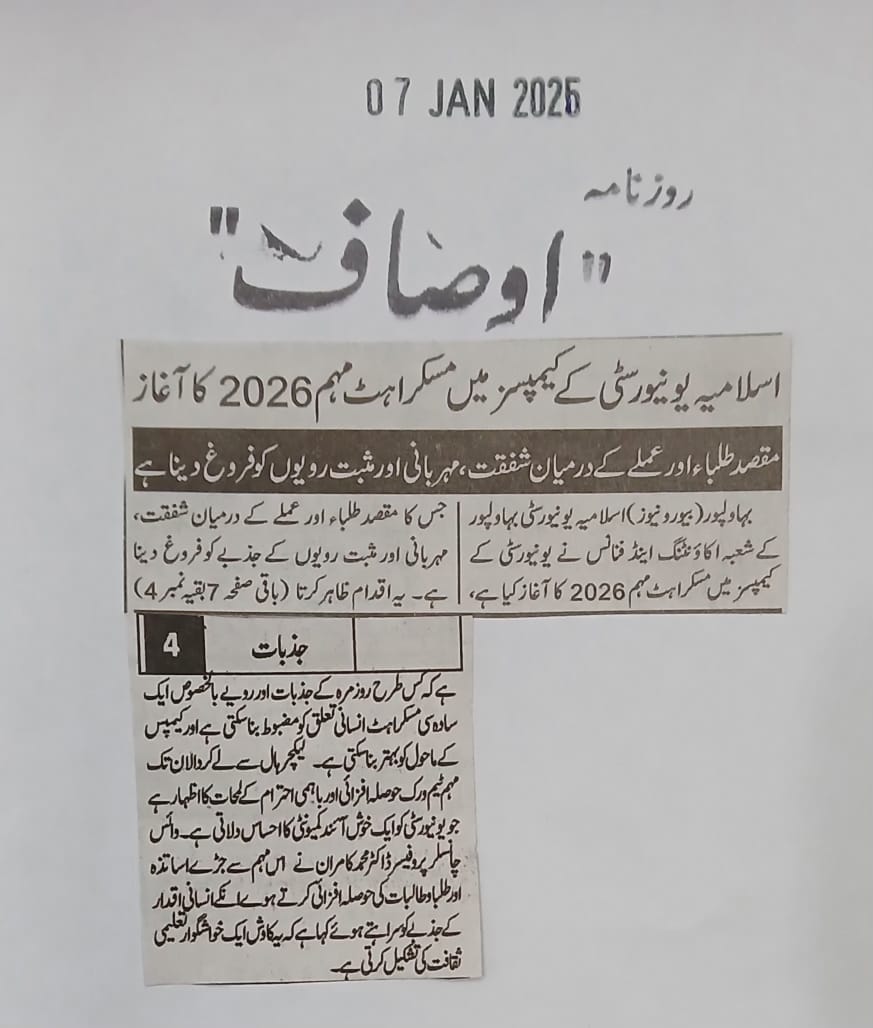 07 JAN 2026
روزنامہ
"اوصاف"
اسلامیہ یونیورسٹی کے کیمپسز میں مسکراہٹ مہم 2026 کا آغاز
مقصد طلباء اور عملے کے درمیان شفقت، مہربانی اور مثبت رویوں کو فروغ دینا ہے
بہاولپور (بیورو نیوز) اسلامیہ یونیورسٹی بہاولپور
کے شعبہ اکاؤنٹنگ اینڈ فنانس نے یونیورسٹی کے
کیمپسز میں مسکراہٹ مہم 2026 کا آغاز کیا ہے،
جس کا مقصد طلباء اور عملے کے درمیان شفقت،
مہربانی اور مثبت رویوں کے جذبے کو فروغ دینا
ہے۔ یہ اقدام ظاہر کرتا (باقی صفحہ 7 بقیہ نمبر 4)
4 جذبات
ہے کہ کس طرح روزمرہ کے جذبات اور رویے بالخصوص ایک
سادہ سی مسکراہٹ انسانی تعلق کو مضبوط بنا سکتی ہے اور کیمپس
کے ماحول کو بہتر بنا سکتی ہے۔ لیکچر ہال سے لے کر دالان تک
مہم ٹیم ورک حوصلہ افزائی اور باہمی احترام کے لمحات کا اظہار ہے
جو یونیورسٹی کو ایک خوش آئند کمیونٹی کا احساس دلاتی ہے۔ وائس
چانسلر پروفیسر ڈاکٹر محمد کامران نے اس مہم سے جڑے اساتذہ
اور طلبا و طالبات کی حوصلہ افزائی کرتے ہوئے انکے انسانی اقدار
کے جذبے کو سراہتے ہوئے کہا ہے کہ یہ کاوش ایک خوشگوار تعلیمی
ثقافت کی تشکیل کرتی ہے۔